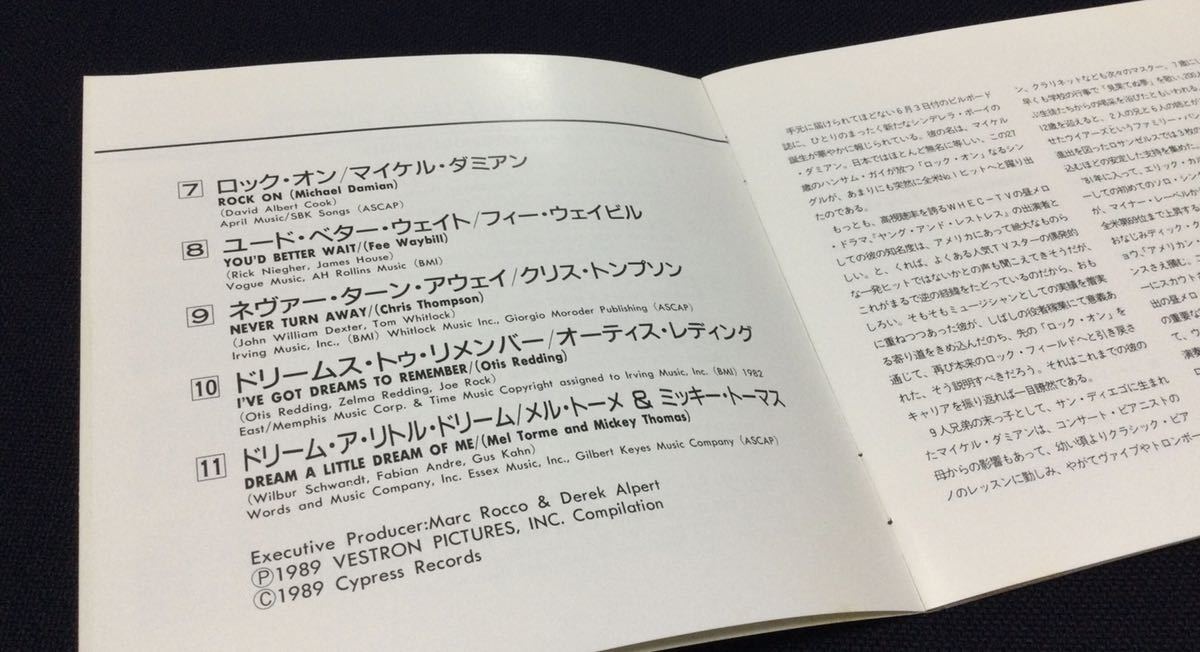 7 ロック・オン/マイケル・ダミアン
ROCK ON (Michael Damian)
(David Albert Cook)
April Music/SBK Songs (ASCAP)
8 ユード・ベター・ウェイト/フィー・ウェイビル
YOU'D BETTER WAIT/(Fee Waybill)
(Rick Niegher, James House)
Vogue Music, AH Rollins Music (BMI)
9 ネヴァー・ターン・アウェイ/クリス・トンプソン
NEVER TURN AWAY/(Chris Thompson)
(John William Dexter, Tom Whitlock)
Irving Music, Inc., (BMI) Whitlock Music Inc., Giorgio Moroder Publishing (ASCAP)
10 ドリームス・トゥ・リメンバー/オーティス・レディング
I'VE GOT DREAMS TO REMEMBER/(Otis Redding)
(Otis Redding, Zelma Redding, Joe Rock)
East/Memphis Music Corp. & Time Music Copyright assigned to Irving Music, Inc. (BMI) 1982
11 ドリーム・ア・リトル・ドリーム/メル・トーメ & ミッキー・トーマス
DREAM A LITTLE DREAM OF ME/(Mel Torme and Mickey Thomas)
(Wilbur Schwandt, Fabian Andre, Gus Kahn)
Words and Music Company, Inc. Essex Music, Inc., Gilbert Keyes Music Company (ASCAP)
Executive Producer:Marc Rocco & Derek Alpert
Ⓟ1989 VESTRON PICTURES, INC. Compilation
Ⓒ1989 Cypress Records
手元に届けられてほどない6月3日付のビルボード
誌に、ひとりのまったく新たなシンデレラ・ボーイの
誕生が華やかに報じられている。彼の名は、マイケル
・ダミアン。日本ではほとんど無名に等しい、この27
歳のハンサム・ガイが放つ「ロック・オン」なるシン
グルが、あまりにも突然に全米No.1ヒットへと躍り出
たのである。
もっとも、高視聴率を誇るWHEC-TVの昼メロ
・ドラマ、『ヤング・アンド・レストレス』の出演者と
しての彼の知名度は、アメリカにあって絶大なものら
しい。と、くれば、よくある人気TVスターの偶発的
な一発ヒットではないかとの声も聞こえてきそうだが、
これがまるで逆の経緯をたどっているのだから、おも
しろい。そもそもミュージシャンとしての実績を着実
に重ねつつあった彼が、しばしの役者稼業にて意義あ
る寄り道をきめ込んだのち、先の「ロック・オン」を
通じて、再び本来のロック・フィールドへと引き戻さ
れた、そう説明すべきだろう。それはこれまでの彼の
キャリアを振り返れば一目瞭然である。
9人兄弟の末っ子として、サン・ディエゴに生まれ
たマイケル・ダミアンは、コンサート・ピアニストの
母からの影響もあって、幼い頃よりクラシック・ピア
ノのレッスンに勤しみ、やがてヴァイブやトロンボー
ン、クラリネットなども次々のマスター。7歳にし
早くも学校の行事で「見果てぬ夢」を歌い、200人
ぶ生徒たちからの喝采を浴びたともいわれる。
12歳を迎えると、2人の兄と6人の姉とが
せたウイアーズというファミリー・バン
進出を図ったロサンゼルスでは3枚の
込むほどの安定した支持を集めた。
'81年に入って、エリック・カ
ーしての初めてのソロ・シン
が、マイナー・レーベルか
全米第69位まで上昇する
おなじみディック・ク
ョウ、「アメリカン
ンスさえ掴む。こ
ーにスカウト
出の昼メロ
の重要な
て、ウ
演奏
ロ